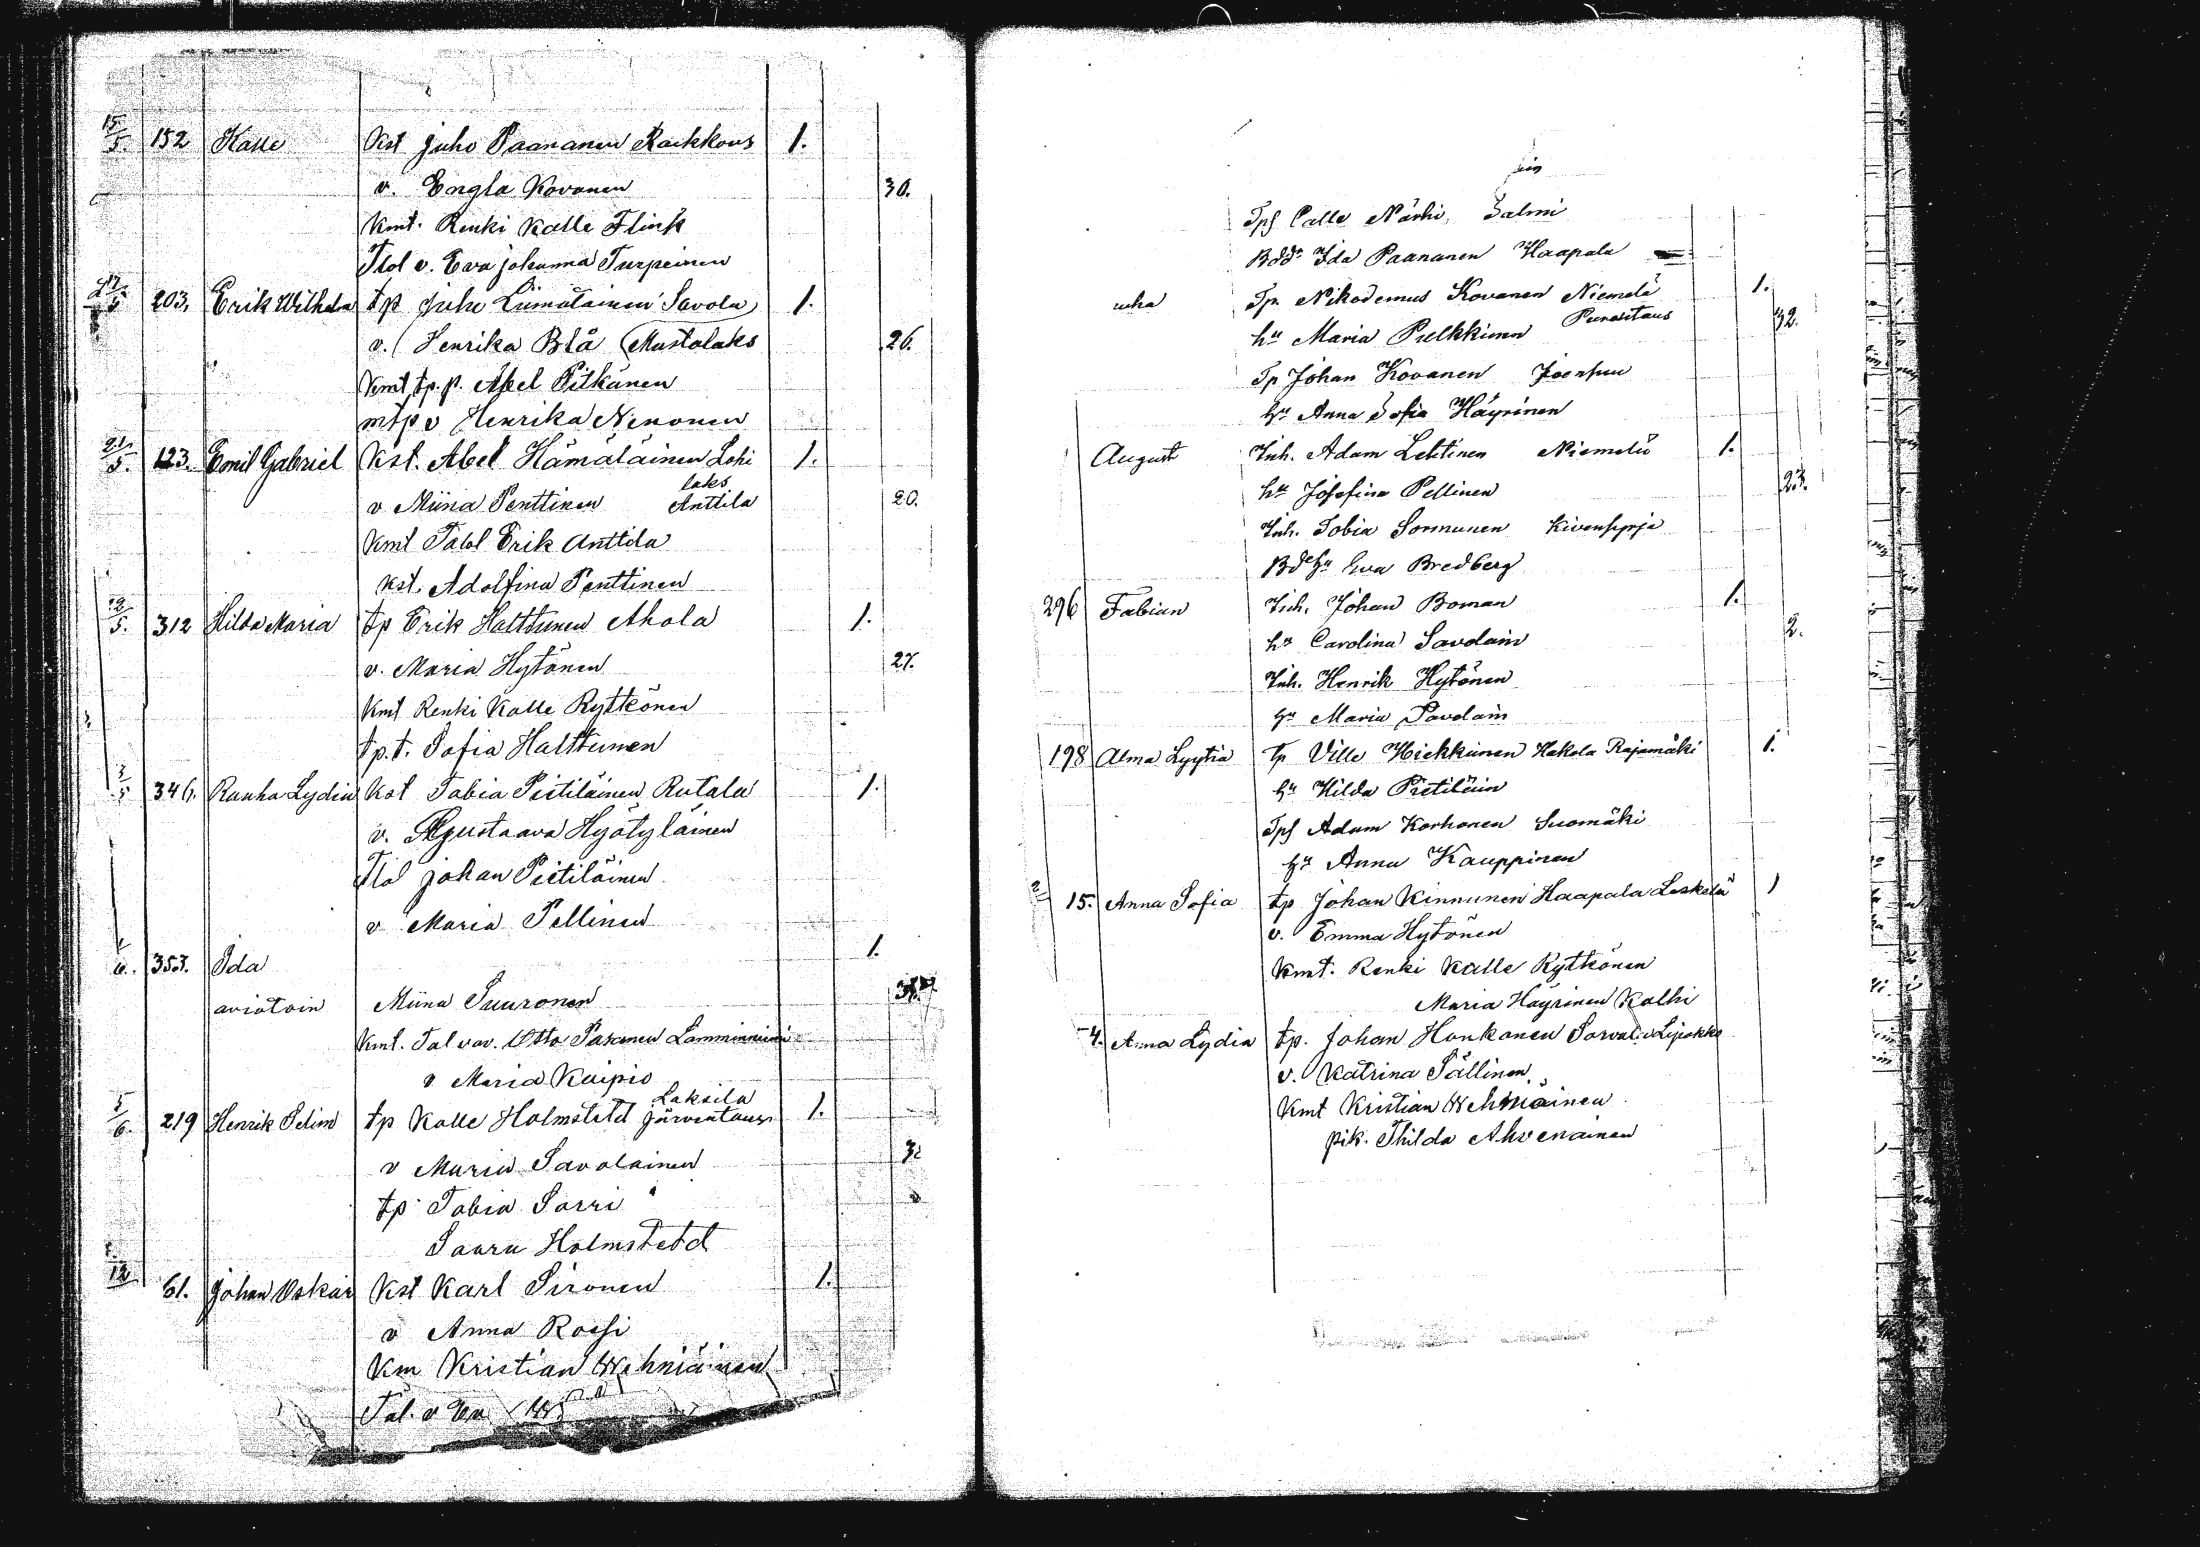 15/5. 152 Kalle Kst Juho Paananen Raikkous 1.
v. Engla Kovanen 30.
Kmt. Renki Kalle Flink
Tlol v. Eva Johanna Turpeinen
203. Erik Wilhelm tp Juho Liimatainen Savola 1.
v. Henrika Blå Mustolaks 26.
Kmt tp. p. Abel Pitkänen
mtp v Henrika Ninonen
21/5. 123. Emil Gabriel Kst. Abel Hämäläinen Lohi 1.
laks
v Miina Penttinen Anttila 20.
Kmt Talol Erik Anttila
Kst. Adolfina Penttinen
12/5. 312 Hilda Maria tp Erik Halttunen Ahola 1.
v. Maria Hytönen 27.
Kmt Renki Kalle Rytkönen
tp.t. Sofia Halttunen
3/5 346. Rauha Lydia Kst Tobia Pietiläinen Rutala 1.
v. Agustaava Hyötyläinen
Tlol Johan Pietiläinen
v Maria Pellinen
1/6. 353. Ida 1.
aviotoin Miina Suuronen
Kmt. Tal vav. Otto Pasanen Lamminniemi
v Maria Kaipio
Laksila
5/6. 219 Henrik Selim tp Kalle Holmstetd Järventaus 1.
v Maria Savolainen
tp Tobia Sarri
Saara Holmstetd
12 61. Johan Oskar Kst Karl Sironen 1.
v Anna Rossi
Km Kristian Wehniäinen
Tal. v Eva
Tps Calle Närhi, Salmi
Ida Paananen Haapala
uha Tp. Nikodemus Kovanen Niemelä 1.
hu Maria Pulkkinen Purasitaus 32.
Tp Johan Kovanen Joensuu
hu Anna Sofia Häyrinen
August Inh. Adam Lehtinen Niemelä 1.
hu Josefina Pellinen 23.
Inh. Tobia Sormunen Kivensyrjä
Eva Bredberg
296 Fabian Inh. Johan Boman 1.
hu Carolina Savolain 2.
Inh. Henrik Hytönen
hu Maria Savolain
198 Alma Lyytia tp Ville Hiekkinen Hakola Rajamäki 1.
hu Hilda Pietiläin
Tps Adam Korhonen Suomäki
hu Anna Kauppinen
15. Anna Sofia tp Johan Kinnunen Haapala Leskelä 1
v. Emma Hytönen
Kmt. Renki Kalle Rytkönen
Maria Häyrinen Kalhi
4. Anna Lydia tp. Johan Honkanen
v. Katrina Sällinen
Kmt Kristian Wehniäinen
pik. Thilda Ahvenainen